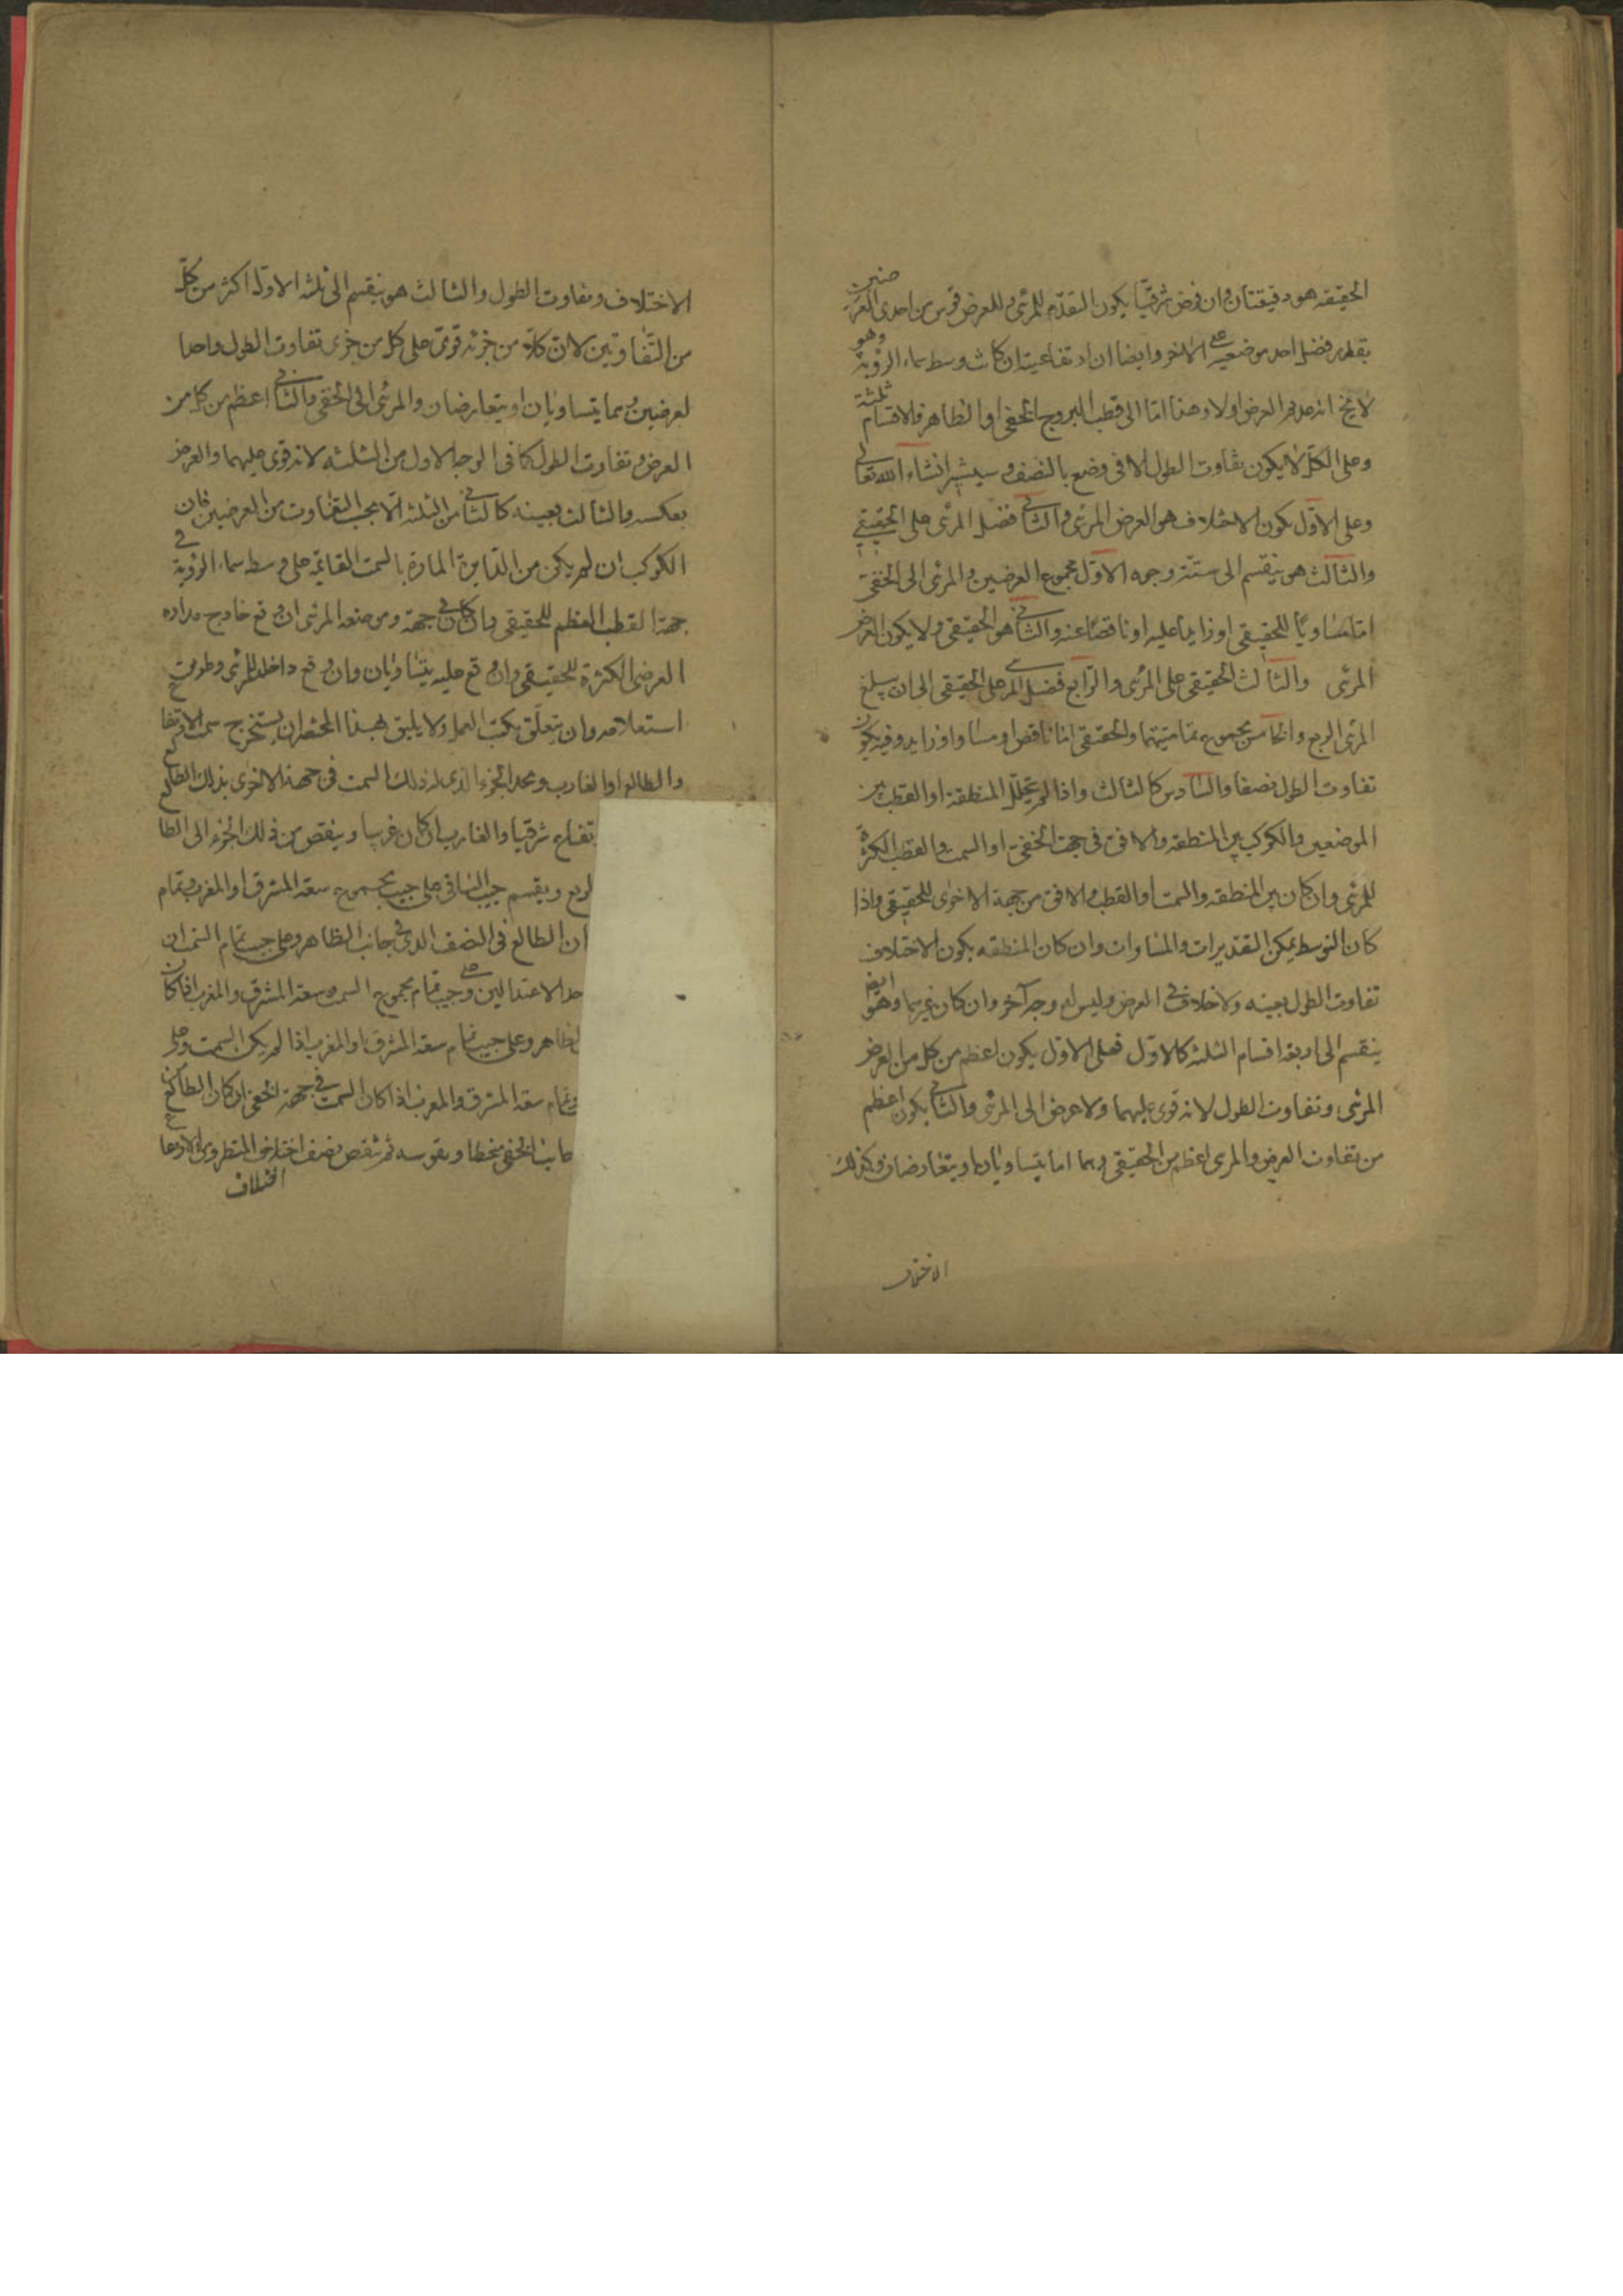 الحقيقه هو دقيقتان وان فرض شرقيا يكون التقدم للمرئى وللعرض قوس من احدى العرضيتين
بقدر فضل احد موضعيه على الاخر وايضا ان ارتفاعيته ان كانت وسط سماء الرؤية وهو
لا يخ انه عديم العرض اولا وهذا اما الى قطب البروج الخفى او الظاهر فالاقسام ثلثة
وعلى الكل لا يكون تفاوت الطول الا فى وضع بالنصف وسيشير انشاء الله تعالى
وعلى الاول يكون الاختلاف هو العرض المرئى والثانى فضل المرئى على الحقيقى
والثالث هو ينقسم الى ستة وجوه الاول مجموع العرضين والمرئى الى الخفى
اما مساويا للحقيقى او زايدا عليه او ناقصا عنه والثانى هو الحقيقى ولا يكون العرض
المرئى والثالث الحقيقى على المرئى والرابع فضل المر على الحقيقى الى ان يبلغ
المرئى الربع والخامس مجموع تماميتهما والحقيقى اما ناقص او مساو او زايد وفيه يكون
تفاوت الطول نصفا والسادس كالثالث واذا لم يتخلل المنطقة او القطب بين
الموضعين والكوكب بين المنطقه والافق فى جهت الخفى او السمت والقطب الكثرة
للمرئى وان كان بين المنطقه والسمت او القطب والافق من جهة الاخرى للحقيقى واذا
كان التوسط يمكن التقديرات والمساوات وان كان المنطقه يكون الاختلاف
تفاوت الطول بعينه ولا خلاف فى العرض وليس له وجه آخر وان كان غيرهما وهو ايضا
ينقسم الى اربعه اقسام الثلثة كالاول فعلى الاول يكون اعظم من كل من العرض
المرئى وتفاوت الطول لانه قوى عليهما ولا عرض الى المرئى والثانى يكون اعظم
من تفاوت العرض والمرئى اعظم من الحقيقى وهما اما يتساويان او يتعارضان وكذلك
الاختلاف
الاختلاف وتفاوت الطول والثالث هو ينقسم الى ثلثه الاول اكثر من كل
من التفاوتين لان كلا من جزئه قوى على كل من جزى تفاوت الطول واحد
لعرضين وهما يتساويان او يتعارضان والمرئى الى الخفى والثانى اعظم من كل من
العرض وتفاوت الطول كما فى الوجه الاول من الثلثه لانه قوى عليهما والعرض
بعكسه والثالث بعينه كالثانى من الثلثه الا بحسب التفاوت من العرضين فان
الكوكب ان لم يكن من الدايرة المارة بالسمت القائمه على وسط سماء الرؤية فى
جهة القطب العظم للحقيقى وان كان فى جهة وموضعه المرئى ان وقع خارج مداره
العرضى الكثرة للحقيقى وان وقع عليه يتساويان وان وقع داخله للمرئى وطريق
استعلامه وان يتعلق بكتب العمل ولا يليق بهذا المختصر ان يستخرج سمت الارتفاع
والطالع او الغارب ويحد الجزء الذى له ذلك السمت فى جهة الاخرى بذلك الطالع
تفاع شرقيا والغارب ان كان غربيا وينقص من ذلك الجزء الى الطا
لربع ويقسم جيب الباقى على جيب مجموع سعة المشرق او المغرب وتمام
ان الطالع فى النصف الذى فى جانب الظاهر وعلى جيب تمام السمت ان
حد الاعتدالين وعلى جيب تمام مجموع السمت وسعة المشرق والمغرب اذا كان
لظاهر وعلى جيب تمام سعة المشرق او المغرب اذا لم يكن السمت وعلى
وتمام سعة المشرق والمغرب اذا كان السمت فى جهة الخفى ان كان الطالع
جانب الخفى منحطا ويقوسه ثم ينقص نصف اختلاف المنظر وى الارتفاع
اختلاف